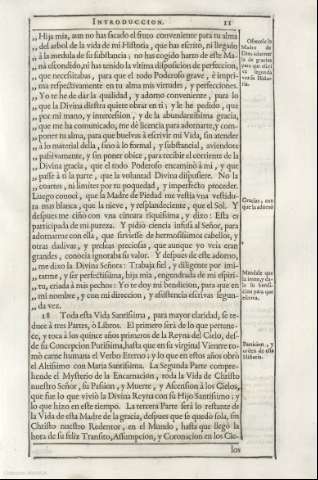 INTRODUCCION. 11
Hija mia, aun no has sacado el fruto conveniente para tu alma
„ del arbol de la vida de mi Historia, que has escrito, ni llegado
„ à la medula de su substancia; no has cogido harto de este Ma-
„ nà escondido, ni has tenido la vltima disposicion de perfeccion,
„ que necessitabas, para que el todo Poderoso grave, è impri-
„ ma respectivamente en tu alma mis virtudes, y perfecciones.
„ Yo te he de dar la qualidad, y adorno conveniente, para lo
„ que la Divina diestra quiere obrar en ti; y le he pedido, que
„ por mi mano, è intercession, y de la abundantissima gracia,
„ que me ha comunicado, me dè licencia para adornarte, y com-
„ poner tu alma, para que buelvas à escrivir mi Vida, sin atender
„ à lo material della, sino à lo formal, y substancial, aviendote
„ passivamente, y sin poner obice, para recibir el corriente de la
„ Divina gracia, que el todo Poderoso encaminò à mi, y que
„ passe à ti la parte, que la voluntad Divina dispusiere. No la
„ coartes, ni limites por tu poquedad, y imperfecto proceder.
Luego conoci, que la Madre de Piedad me vestia vna vestidu-
ra mas blanca, que la nieve, y resplandeciente, que el Sol. Y
despues me ciñò con vna cintura riquissima, y dixo: Esta es
participada de mi pureza. Y pidiò ciencia infusa al Señor, para
adornarme con ella, que sirviesse de hermosissimos cabellos, y
otras dadivas, y presas preciosas, que aunque yo veìa eran
grandes, conocia ignoraba su valor. Y despues de este adorno,
„ me dixo la Divina Señora: Trabaja fiel, y diligente por imi-
„ tarme, y ser perfectissima, hija mia, engendrada de mi espiri-
„ tu, criada à mis pechos: Yo te doy mi bendicion, para que en
„ mi nombre, y con mi direccion, y assistencia escrivas segun-
„ da vez.
18 Toda esta Vida Santissima, para mayor claridad, se re-
duce à tres Partes, ò Libros. El primero serà de lo que pertene-
ce, y toca à los quince años primeros de la Reyna del Cielo, des-
de su Concepcion Purissima, hasta que en su virginal Vientre to-
mò carne humana el Verbo Eterno; y lo que en estos años obrò
el Altissimo con Maria Santissima. La Segunda Parte compre-
hende el Mysterio de la Encarnacion, toda la Vida de Christo
nuestro Señor, su Passion, y Muerte, y Ascension à los Cielos,
que fue lo que viviò la Divina Reyna con su Hijo Santissimo; y
lo que hizo en este tiempo. La tercera Parte serà lo restante de
la Vida de esta Madre de la gracia, despues que se quedò sola, sin
Christo nuestro Redentor, en el Mundo, hasta que llegò la
hora de su feliz Transito, Assumpcion, y Coronacion en los Cie-
los
Madre de
Dios
de gracias
para que
segunda
Gracias, con
que la adornò
Bendicion, y